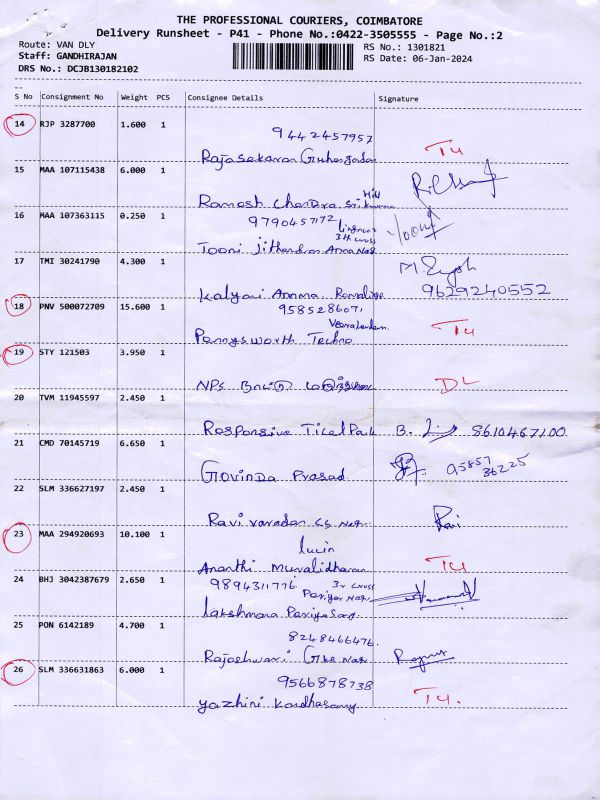 THE PROFESSIONAL COURIERS, COIMBATORE
Delivery Runsheet - P41 - Phone No.:0422-3505555 - Page No.:2
Route: VAN DLY
RS No.: 1301821
Staff: GANDHIRAJAN
RS Date: 06-Jan-2024
DRS No.: DCJB130182102
S No Consignment No Weight PCS Consignee Details Signature
14 RJP 3287700 1.600 1 9442457957
Rajasekaran
15 MAA 107115438 6.000 1
Ramesh Chandra
16 MAA 107363115 0.250 1 9790457172
3th cross
Tooni Jithendran Anna Nagr
17 TMI 30241790 4.300 1
Kalyani Amma 9629240552
18 PNV 500072709 15.600 1 9585286071
Pennysworth Techno
19 STY 121503 3.950 1
NPS DL
20 TVM 11945597 2.450 1
Responsive B. 8610467100
21 CMD 70145719 6.650 1
Govinda Prasad 95857 36225
22 SLM 336627197 2.450 1
Ravi Varadan SS Nagr Ravi
23 MAA 294920693 10.100 1
Ananthi Muralidharan
24 BHJ 3042387679 2.650 1 9894311776 3r cross
Periyar Nagr
Lakshmana Periyasamy
25 PON 6142189 4.700 1 8248466476
Rajeshwari Nagr
26 SLM 336631863 6.000 1 9566878738
Yazhini Kandhasamy